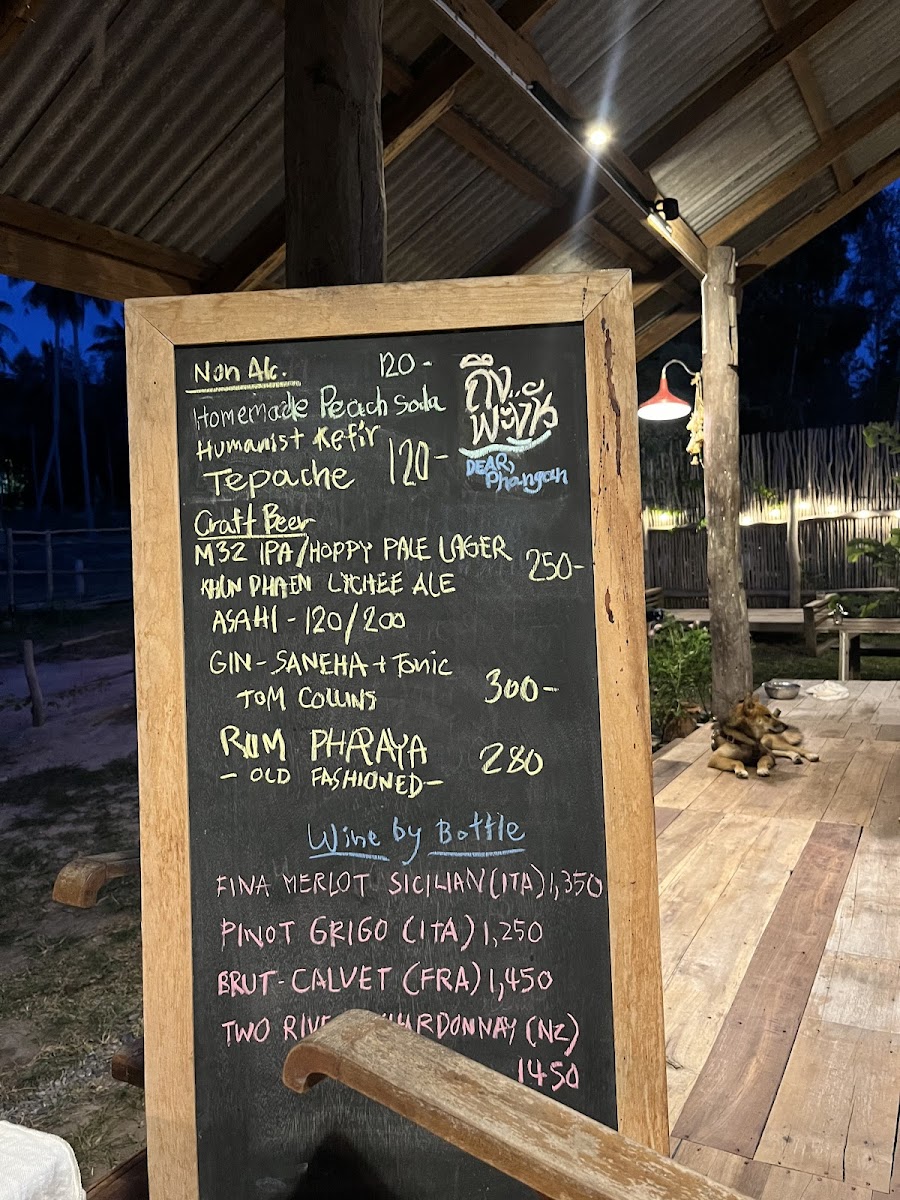 Non Alc. 120-
Homemade Peach Soda
Humanist Kefir
Tepache 120-
ถึง
พะงัน
DEAR,
Phangan
Craft Beer
M32 IPA/HOPPY PALE LAGER 250-
KHUN PHAEN LYCHEE ALE
ASAHI - 120/200
GIN - SANEHA + Tonic
TOM COLLINS 300-
RUM PHRAYA 280
- OLD FASHIONED -
Wine by Bottle
FINA MERLOT SICILIAN (ITA) 1,350
PINOT GRIGO (ITA) 1,250
BRUT-CALVET (FRA) 1,450
TWO (NZ)
1450